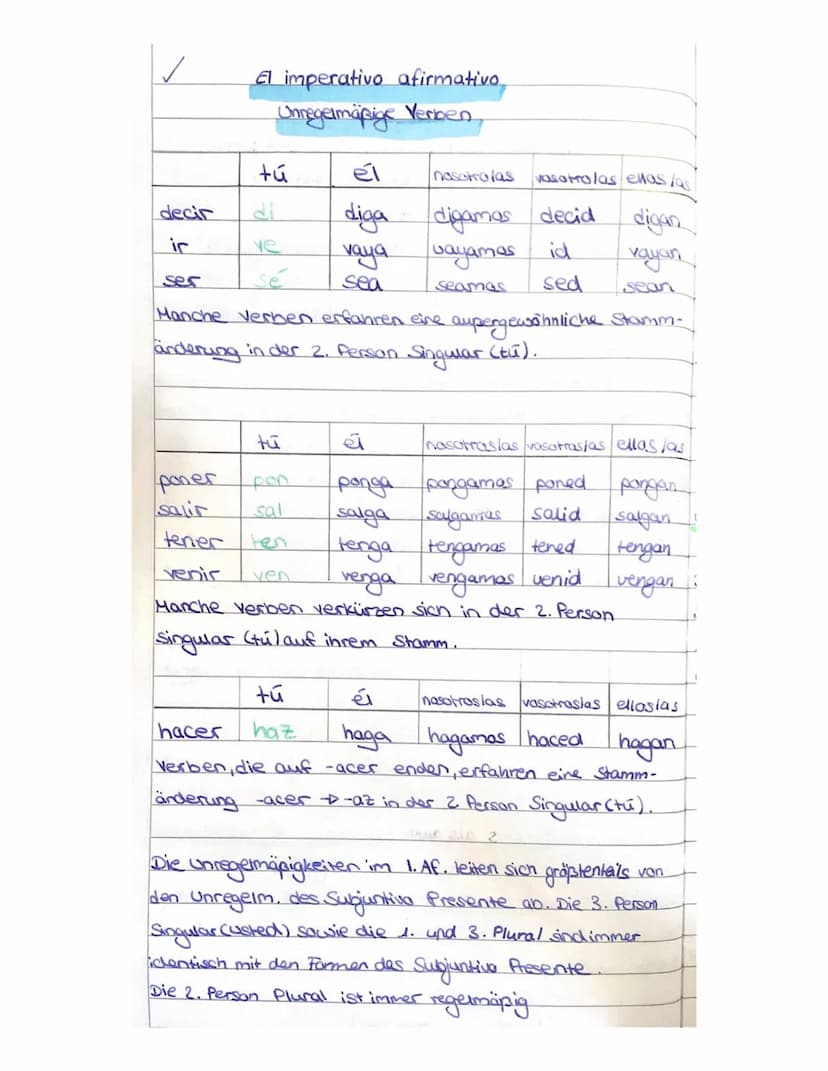 El imperativo afirmativo
Unregelmäßige Verben
tú él nosotro/as vosotro/as ellos/as
decir di diga digamos decid digan
ir ve vaya vayamos id vayan
ser sé sea seamos sed sean
Manche Verben erfahren eine außergewöhnliche Stamm-
änderung in der 2. Person Singular (tú).
tú él nosotras/as vosotras/as ellas/as
poner pon ponga pongamos poned pongan
salir sal salga salgamos salid salgan
tener ten tenga tengamos tened tengan
venir ven venga vengamos venid vengan
Manche Verben verkürzen sich in der 2. Person
Singular (tú) auf ihrem Stamm.
tú él nosotros/as vosotros/as ellos/as
hacer haz haga hagamos haced hagan
Verben, die auf -acer enden, erfahren eine Stamm-
änderung -acer → -az in der 2. Person Singular (tú).
Die Unregelmäßigkeiten im I. Af. leiten sich größtentails von
den Unregelm. des Subjuntivo Presente ab. Die 3. Person
Singular (usted) sowie die 1. und 3. Plural sind immer
identisch mit den Formen des Subjuntivo Presente.
Die 2. Person Plural ist immer regelmäßig